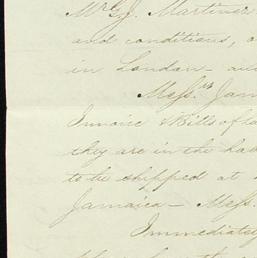 Mr G. J. Martinez
and conditions, a
in London -
Mess.rs Jam
Invoice Bills of la
they are in the hab
to be shipped at
Jamaica - Mess.
Immediately